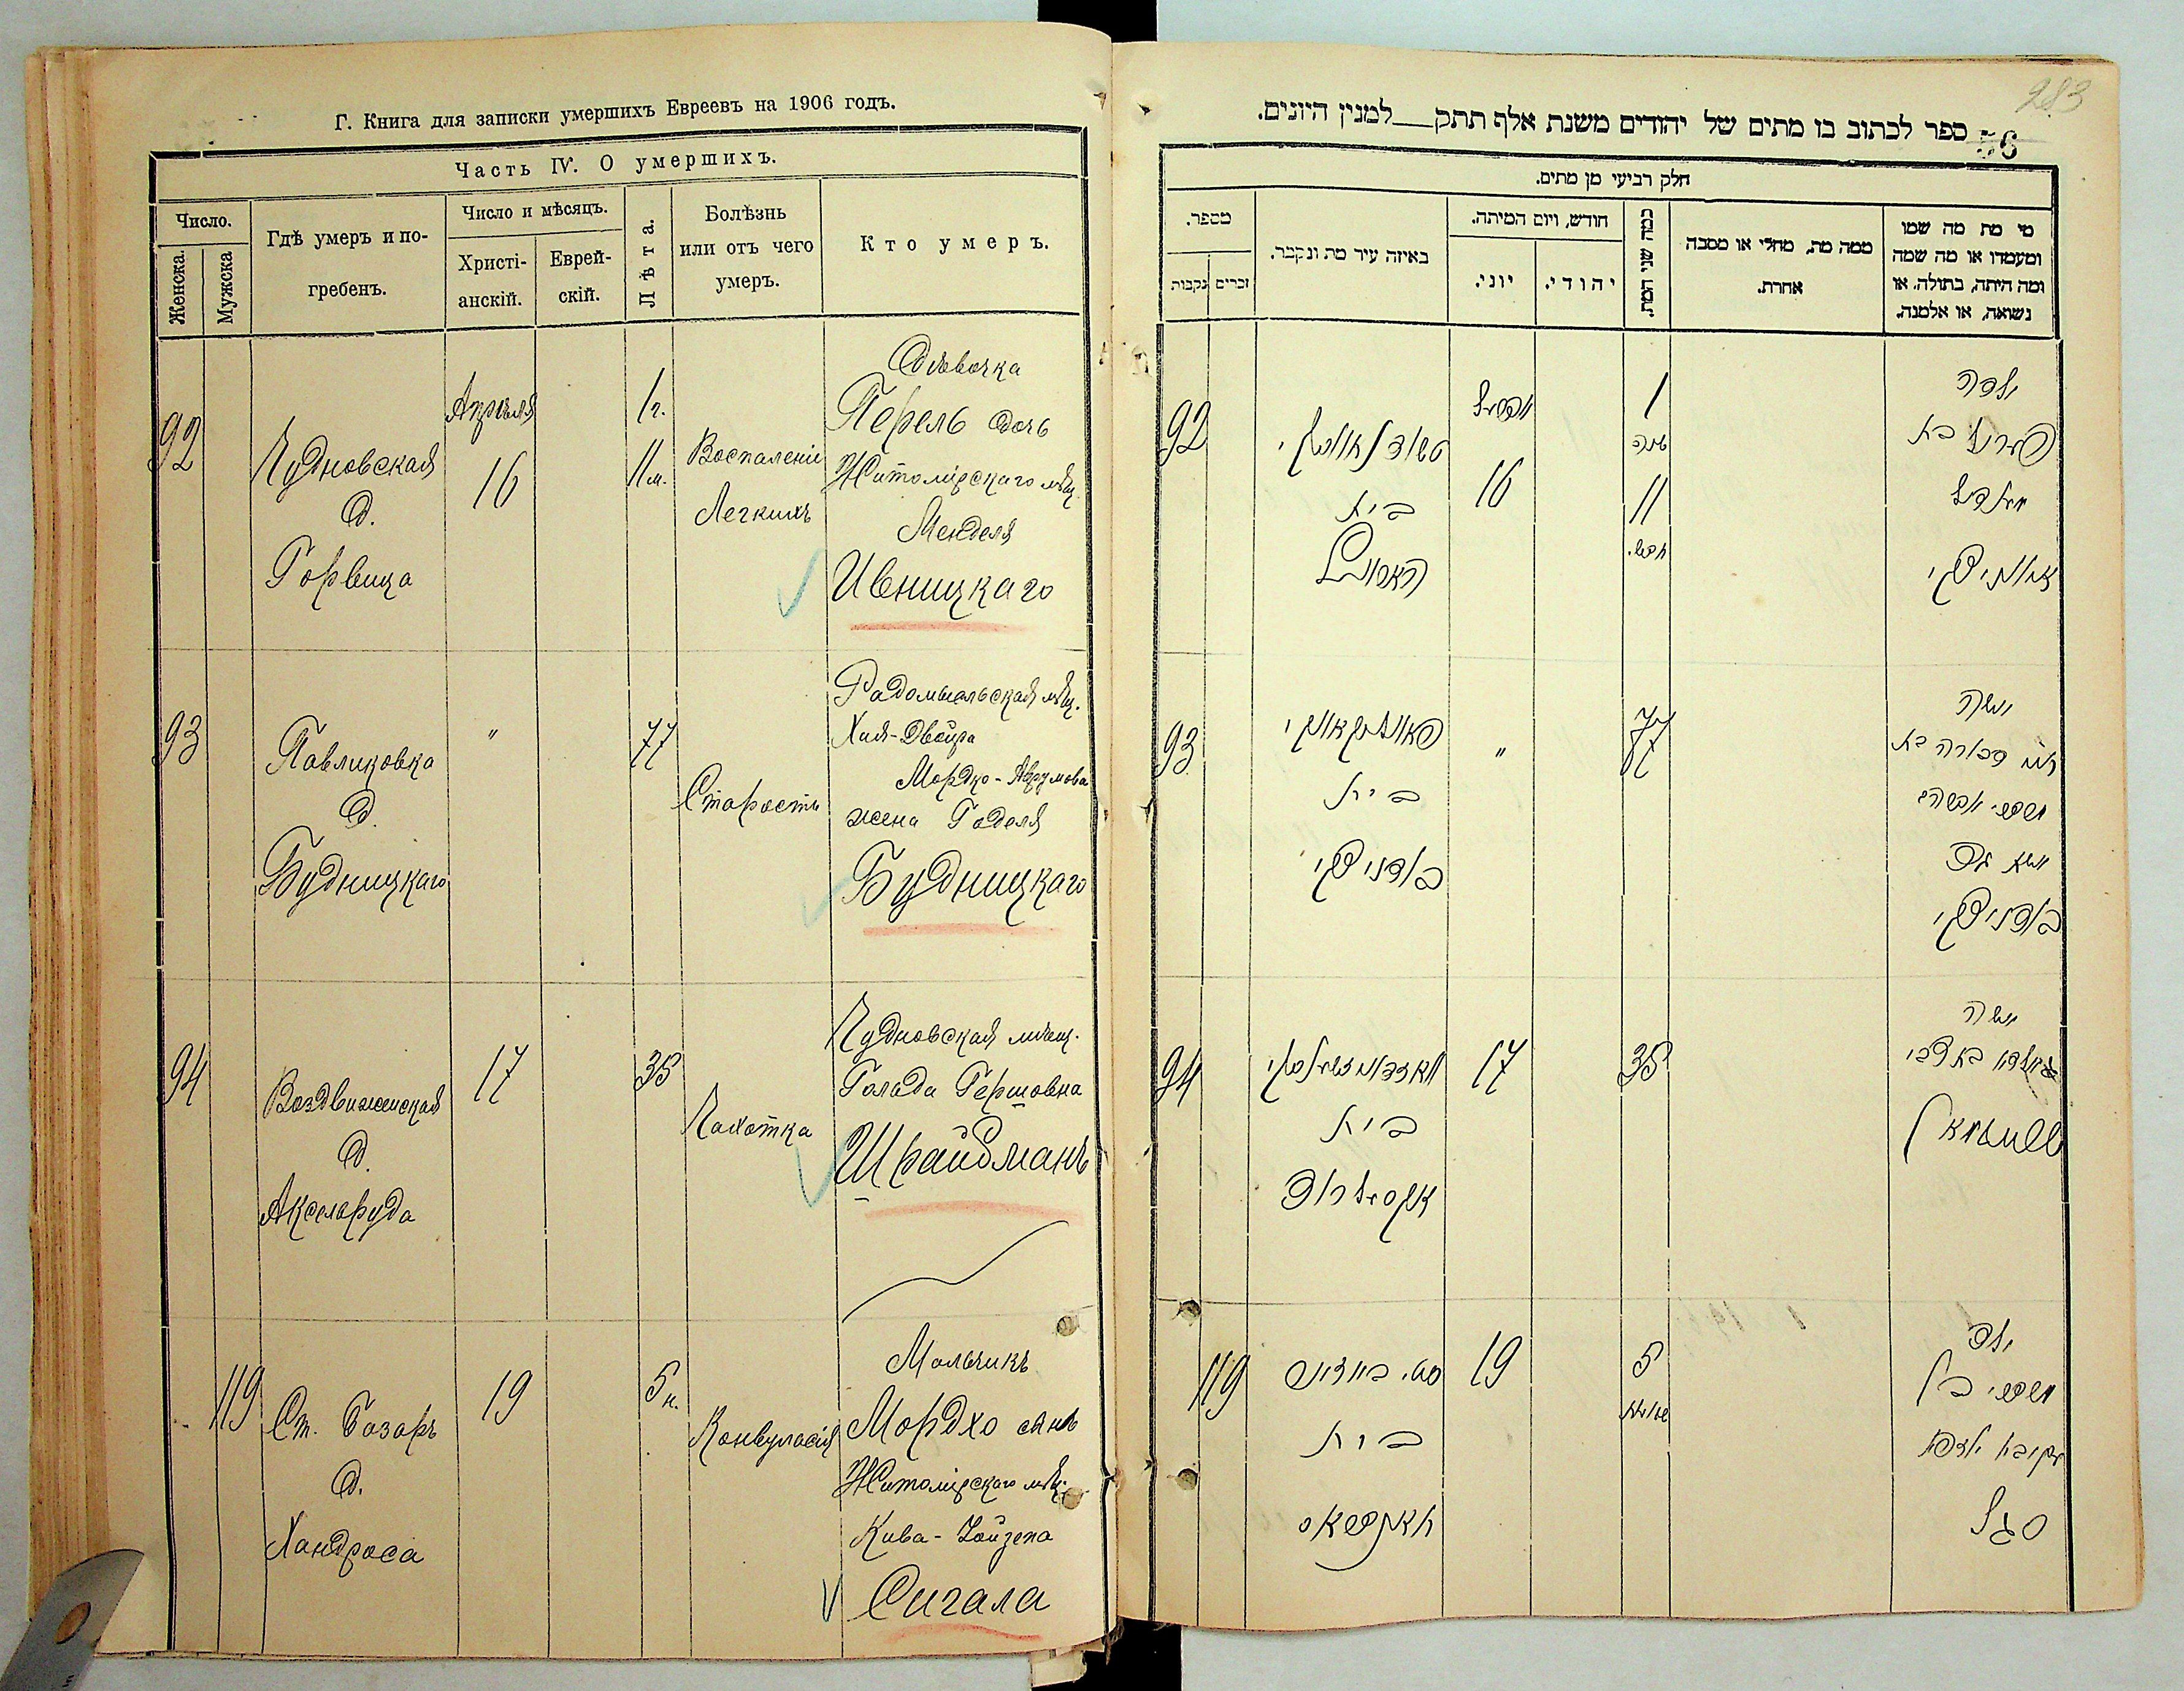 Г. Книга для записки умершихъ Евреевъ на 1906 годъ.
Часть IV. О умершихъ.
Число.
Женска.
Мужска
Гдѣ умеръ и по-
гребенъ.
Число и мѣсяцъ.
Христі-
анскій.
Еврей-
скій.
Лѣта.
Болѣзнь
или отъ чего
умеръ.
Кто умеръ.
92
Чудновская
д.
Горвица
Апрѣля
16
1 г.
11 м.
Воспаленіе
Легкихъ
Дѣвочка
Перель дочь
Житомірскаго мѣщ.
Менделя
Ивницкаго
93
Павликовка
д.
Будницкаго
"
77
Старость
Радомысльская мѣщ.
Хая-Двойра
Мордко-Аврумова
жена Годеля
Будницкаго
94
Воздвиженская
д.
Аксельруда
17
35
Чахотка
Чудновская мѣщ.
Голда Гершовна
Шрайбманъ
119
Ст. Базаръ
д.
Хандроса
19
5 н.
Конвульсія
Мальчикъ
Мордхо сынъ
Житомірскаго мѣщ.
Кива-Іойзепа
Сигала
283
56
ספר לכתוב בו מתים של יהודים משנת אלף תתק למנין היונים.
חלק רביעי מן מתים.
מספר.
נקבות
זכרים
באיזה עיר מת ונקבר.
חודש, ויום המיתה.
יוני.
יהודי.
כמה שני המת.
ממה מת, מחלי או מסבה
אחרת.
מי מת מה שמו
ומעמדו או מה שמה
ומה היתה, בתולה. או
נשואה, או אלמנה.
92
בית
16
1
שנה
11
חדשי
ילדה
בת
93
בית
בודניצקי
"
77
אשה
בודניצקי
94
בית
17
35
אשה
119
בית
19
5
ילד
בן
סגל